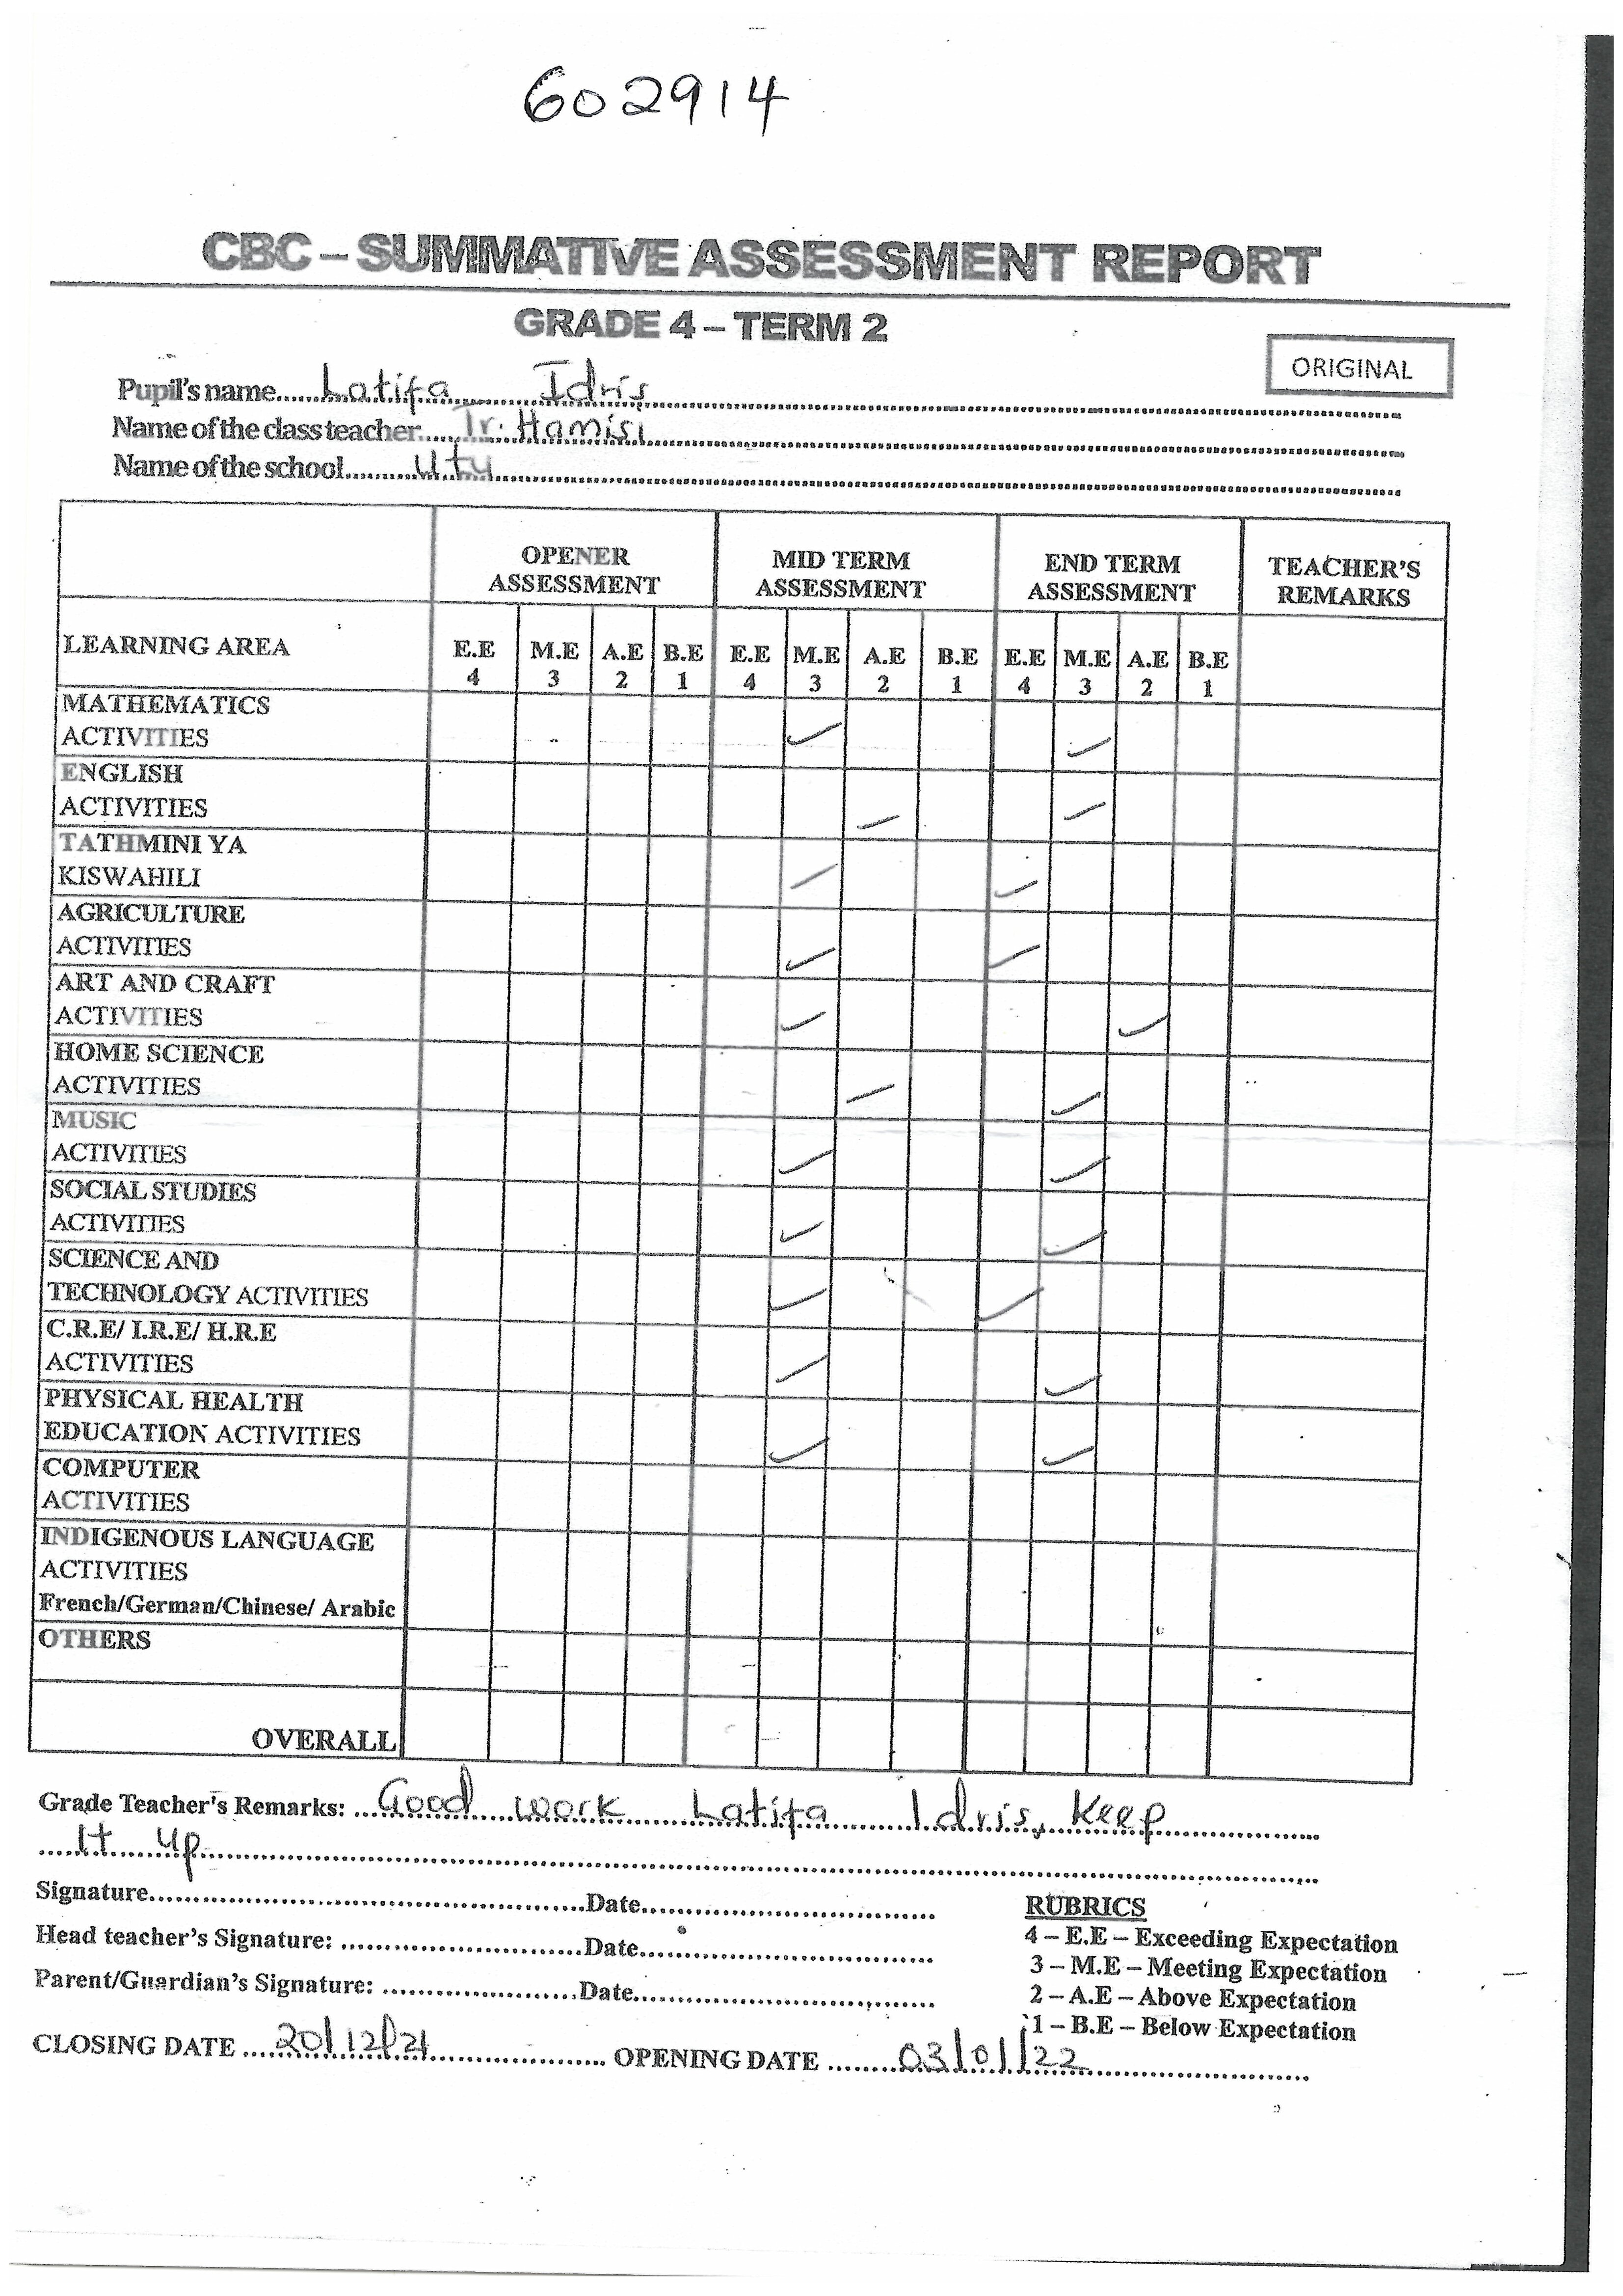 602914
CBC – SUMMATIVE ASSESSMENT REPORT
GRADE 4 – TERM 2
ORIGINAL
Pupil's name Latifa Idris
Name of the class teacher: Tr. Hamisi
Name of the school Utu
OPENER ASSESSMENT MID TERM ASSESSMENT END TERM ASSESSMENT TEACHER'S REMARKS
LEARNING AREA E.E 4 M.E 3 A.E 2 B.E 1 E.E 4 M.E 3 A.E 2 B.E 1 E.E 4 M.E 3 A.E 2 B.E 1
MATHEMATICS
ACTIVITIES ✓ ✓
ENGLISH
ACTIVITIES ✓ ✓
TATHMINI YA
KISWAHILI ✓ ✓
AGRICULTURE
ACTIVITIES ✓ ✓
ART AND CRAFT
ACTIVITIES ✓ ✓
HOME SCIENCE
ACTIVITIES ✓ ✓
MUSIC
ACTIVITIES ✓ ✓
SOCIAL STUDIES
ACTIVITIES ✓ ✓
SCIENCE AND
TECHNOLOGY ACTIVITIES ✓ ✓
C.R.E/ I.R.E/ H.R.E
ACTIVITIES ✓ ✓
PHYSICAL HEALTH
EDUCATION ACTIVITIES ✓ ✓
COMPUTER
ACTIVITIES
INDIGENOUS LANGUAGE
ACTIVITIES
French/German/Chinese/ Arabic
OTHERS
OVERALL
Grade Teacher's Remarks: Good work Latifa Idris, Keep
It up
Signature Date
Head teacher's Signature: Date
Parent/Guardian's Signature: Date
RUBRICS
4 – E.E – Exceeding Expectation
3 – M.E – Meeting Expectation
2 – A.E – Above Expectation
1 – B.E – Below Expectation
CLOSING DATE 20/12/21 OPENING DATE 03/01/22